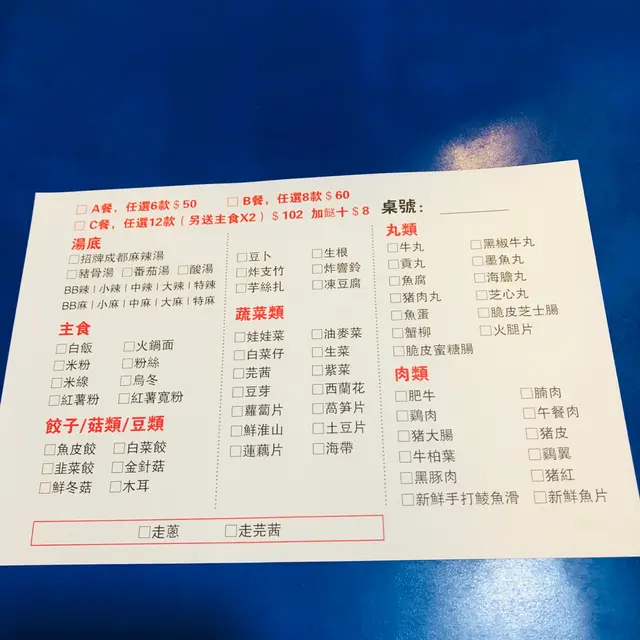 □A餐，任選6款$50 □B餐，任選8款$60
□C餐，任選12款（另送主食X2）$102 加餸十$8 桌號：
湯底
□招牌成都麻辣湯
□豬骨湯 □番茄湯 □酸湯
BB辣|小辣|中辣|大辣|特辣
BB麻|小麻|中麻|大麻|特麻
主食
□白飯 □火鍋面
□米粉 □粉絲
□米線 □烏冬
□紅薯粉 □紅薯寬粉
餃子/菇類/豆類
□魚皮餃 □白菜餃
□韭菜餃 □金針菇
□鮮冬菇 □木耳
□豆卜 □生根
□炸支竹 □炸響鈴
□芋絲扎 □凍豆腐
蔬菜類
□娃娃菜 □油麥菜
□白菜仔 □生菜
□芫茜 □紫菜
□豆芽 □西蘭花
□蘿蔔片 □萵笋片
□鮮淮山 □土豆片
□蓮藕片 □海帶
丸類
□牛丸 □黑椒牛丸
□貢丸 □墨魚丸
□魚腐 □海膽丸
□豬肉丸 □芝心丸
□魚蛋 □脆皮芝士腸
□蟹柳 □火腿片
□脆皮蜜糖腸
肉類
□肥牛 □腩肉
□鷄肉 □午餐肉
□猪大腸 □猪皮
□牛柏葉 □鷄翼
□黑豚肉 □猪紅
□新鮮手打鯪魚滑 □新鮮魚片
□走蔥 □走芫茜